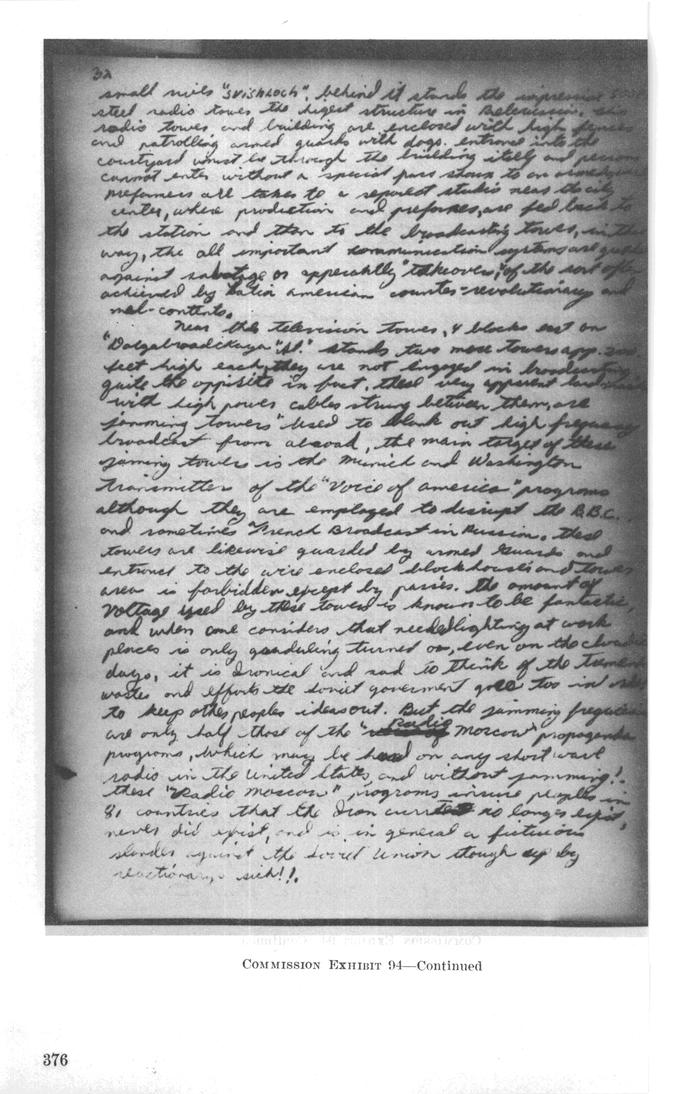 32
small rivies "SVISHLOCH", behind it stands the impressive
steel radio tower the higest structure in Belerussian.
radio tower, and building are enclosed with high fences
and patrolling armed guards with dogs. entrance into the
courtyard must be through the building itself and persons
cannot enter without a special pass shown to an armed guard
preformers are taken to a seperet studio near the city
center, where production and preformes, are fed back to
the station and then to the broadcasting tower, in this
way, the all important communication systems are guarded
against sabotage or appecahtly "takeover", of the sort often
achieved by Latin american counter-revolutionary and
mal-contents.
Near this television tower, 4 blocks east on
stands two more towers app. 200
feet high each, they are not engaged in broadcasting
quite the oppisite in fact, these very apparent landmarks
with high power cables strung between them, are
"jamming towers" used to blank out high frequency
broadcast from abroad, the main target of these
jaming towers is the Munich and Washington
transmitter of the "Voice of america" programs
although they are employed to disrupt the B.B.C.
and sometimes French Broadcast in Russian. these
towers are likewise guarded by armed guards and
entrance to the wire enclosed blockhouse and tower
area is forbidden except by passes. the amount of
Voltage used by these towers is known to be fantastic,
and when one considers that needed lighting at work
places is only turned on, even on the
days, it is Ironical and sad to think of the
wastes and efforts the soviet goverment goes too in order
to keep other peoples ideas out. But the jamming frequencies
are only half those of the "Radio Moscow" propaganda
programs, which may be heard on any short wave
radio in the United States, and without jamming!.
these "Radio Moscow" programs insure peoples in
81 countries that the Iron no longer exist,
never did exist, and is in general a fictuious
slander against the Soviet Union though up by
reactionarys sick!!.
COMMISSION EXHIBIT 94—Continued
376